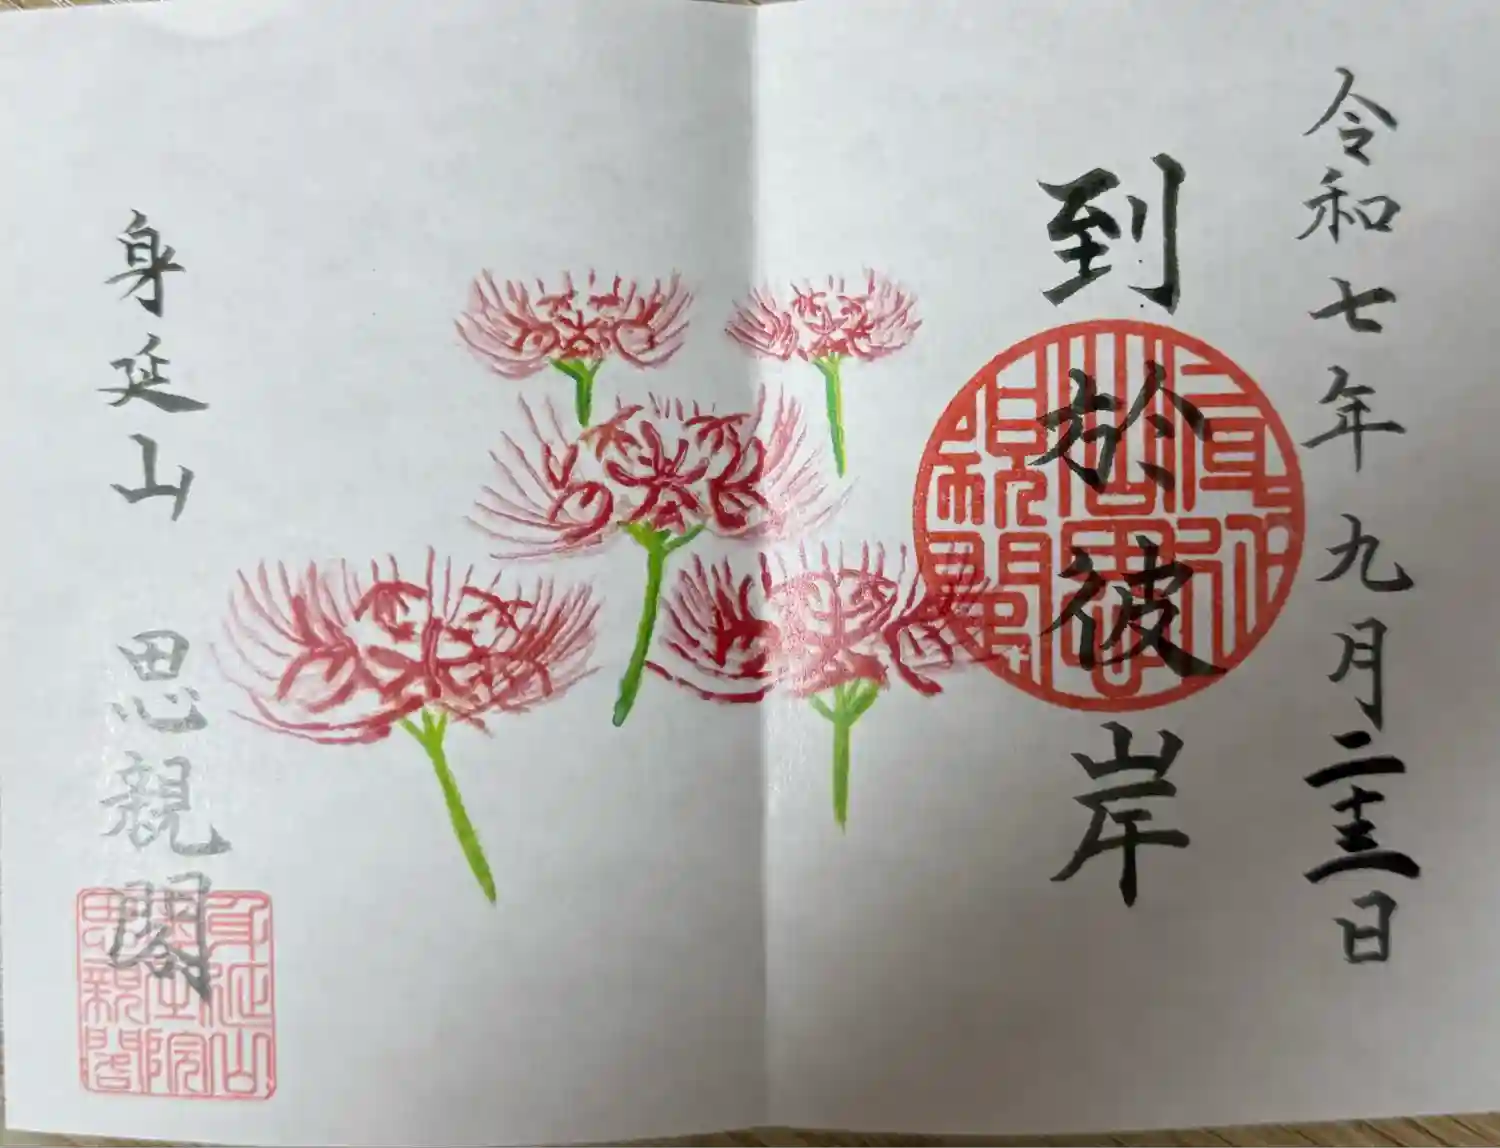 令和七年九月二十三日
到於彼岸
身延山
思親閣
身延山
思親閣